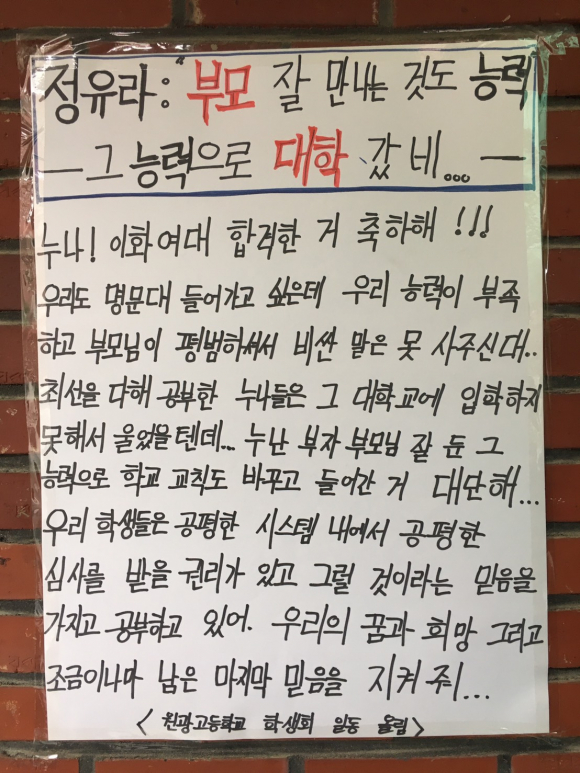 정유라:"부모 잘 만나는 것도 능력
— 그 능력으로 대학 갔네... —
누나! 이화여대 합격한 거 축하해 !!!
우리도 명문대 들어가고 싶은데 우리 능력이 부족
하고 부모님이 평범하셔서 비싼 말은 못 사주신대..
최선을 다해 공부한 누나들은 그 대학교에 입학하지
못해서 울었을텐데... 누난 부자 부모님 잘 둔 그
능력으로 학교 교칙도 바꾸고 들어간 거 대단해...
우리 학생들은 공평한 시스템 내에서 공평한
심사를 받을 권리가 있고 그럴 것이라는 믿음을
가지고 공부하고 있어. 우리의 꿈과 희망 그리고
조금이나마 남은 마지막 믿음을 지켜줘...
< 원광고등학교 학생회 일동 올림 >